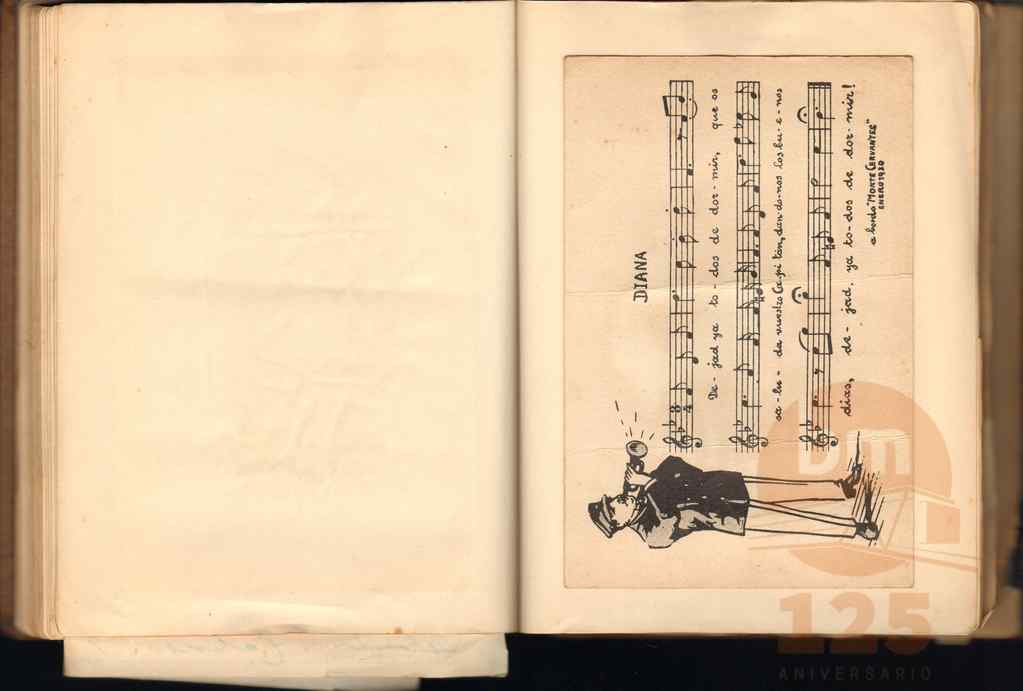 DIANA
De-jad ya to-dos de dor-mir, que os
sa-lu-da vuestro Ca-pi-tán, dan-do-nos los bu-e-nos
días, de-jad, ya to-dos de dor-mir!
a bordo "MONTE CERVANTES"
ENERO 1930
Dm
125
ANIVERSARIO